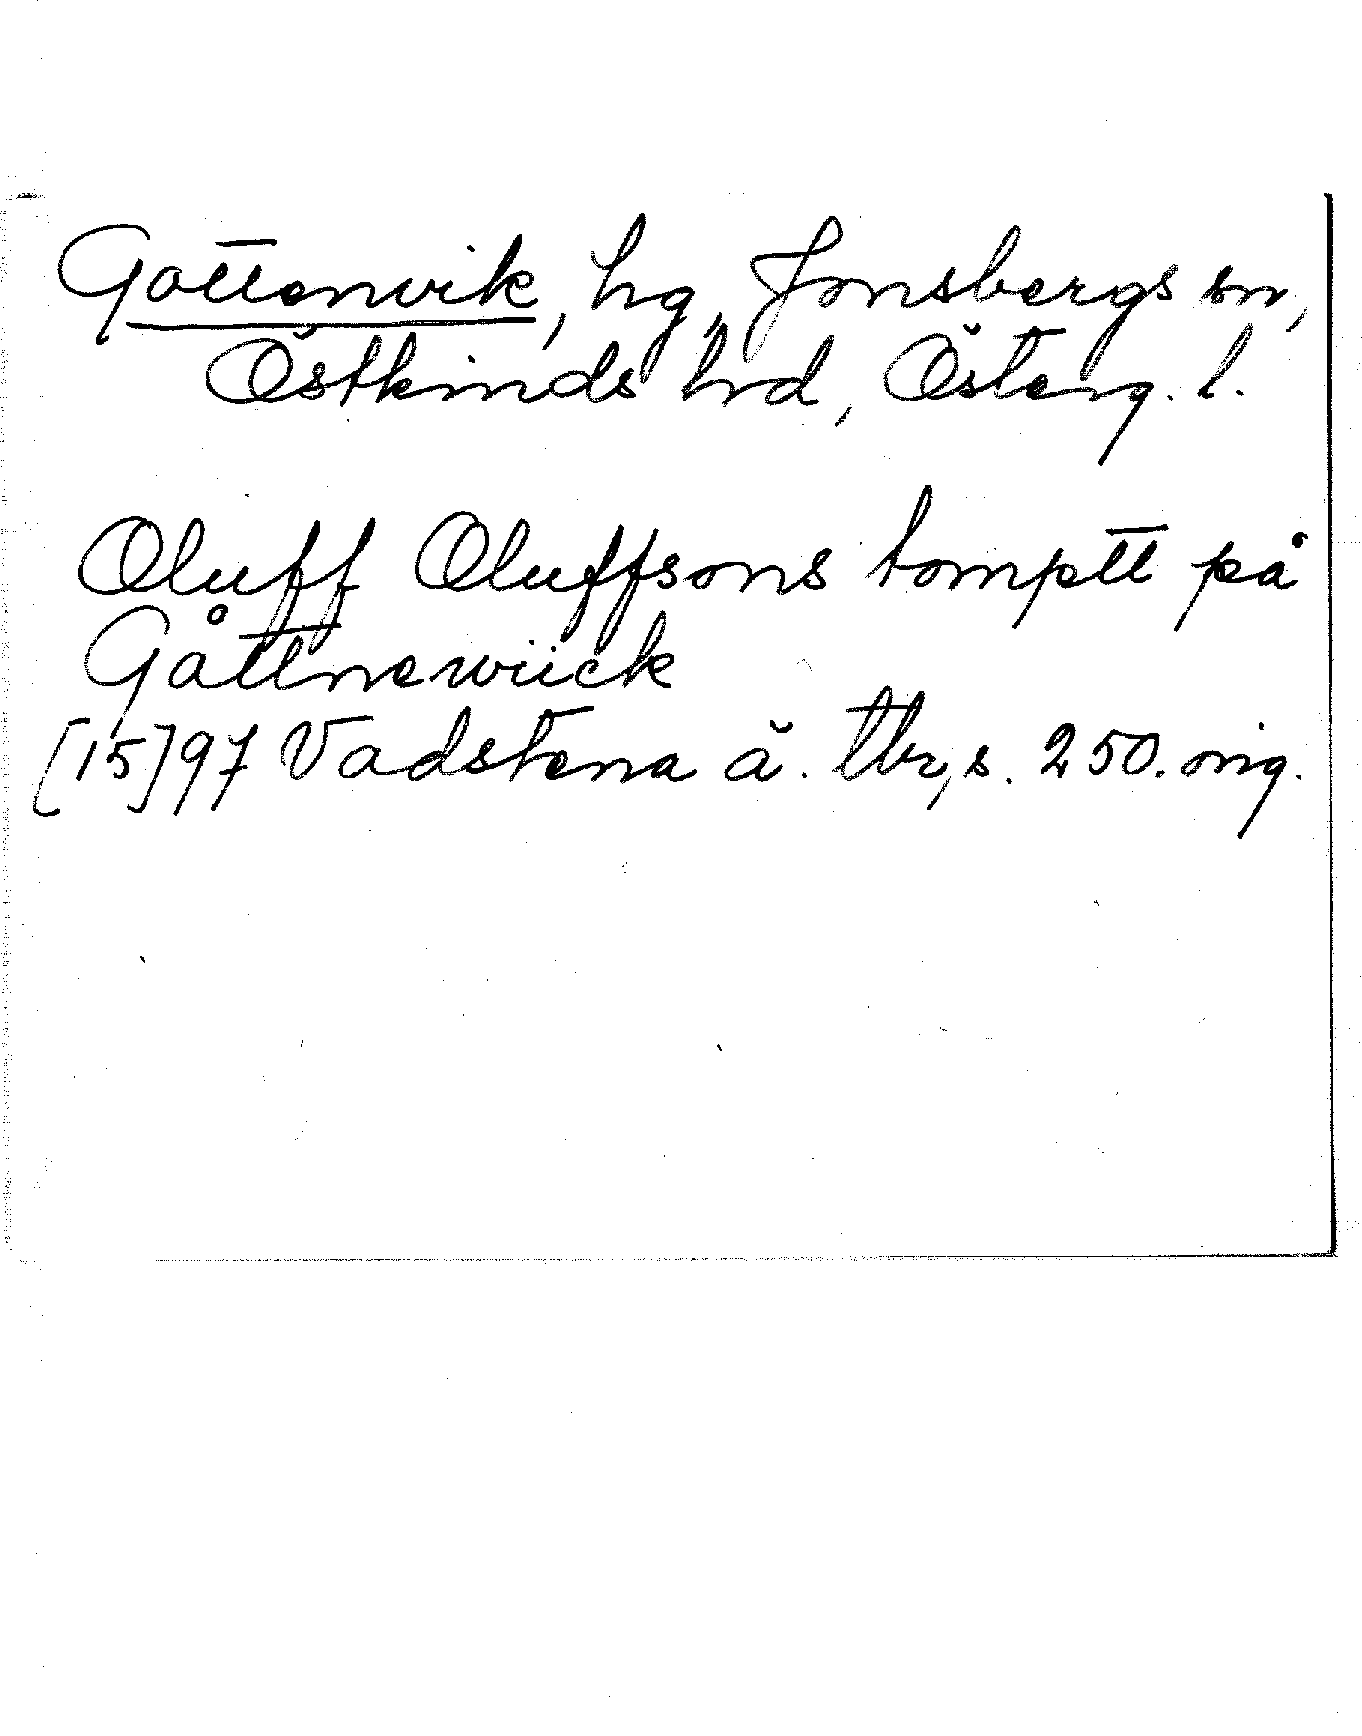 Gottenvik, hg, Jonsbergs sn,
Östkinds hrd, Österg. l.
Oluff Oluffsons tomptt på
Gåttnewiick
[15]97 Vadstena ä. tbr, s. 250. orig.